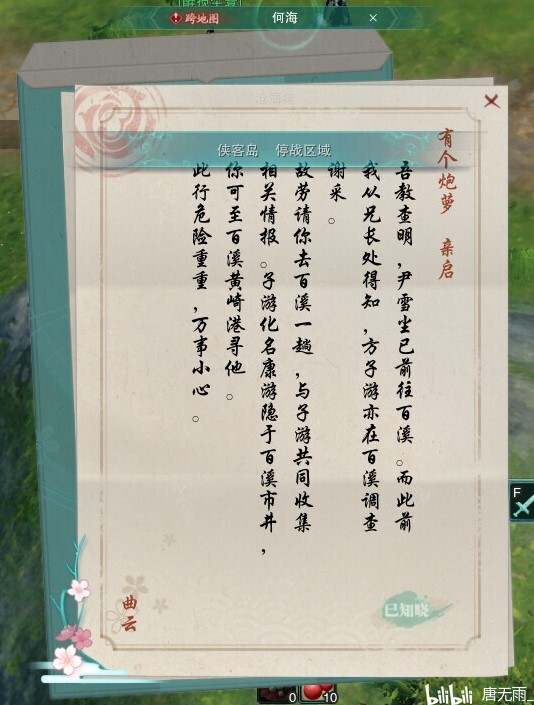 跨地图
何海
侠客岛 停战区域
有个炮萝 亲启
吾教查明，尹雪尘已前往百溪。而此前
我从兄长处得知，方子游亦在百溪调查
谢采。
故劳请你去百溪一趟，与子游共同收集
相关情报。子游化名康游隐于百溪市井，
你可至百溪黄崎港寻他。
此行危险重重，万事小心。
曲云
已知晓
F
0
10
bilibili 唐无雨_